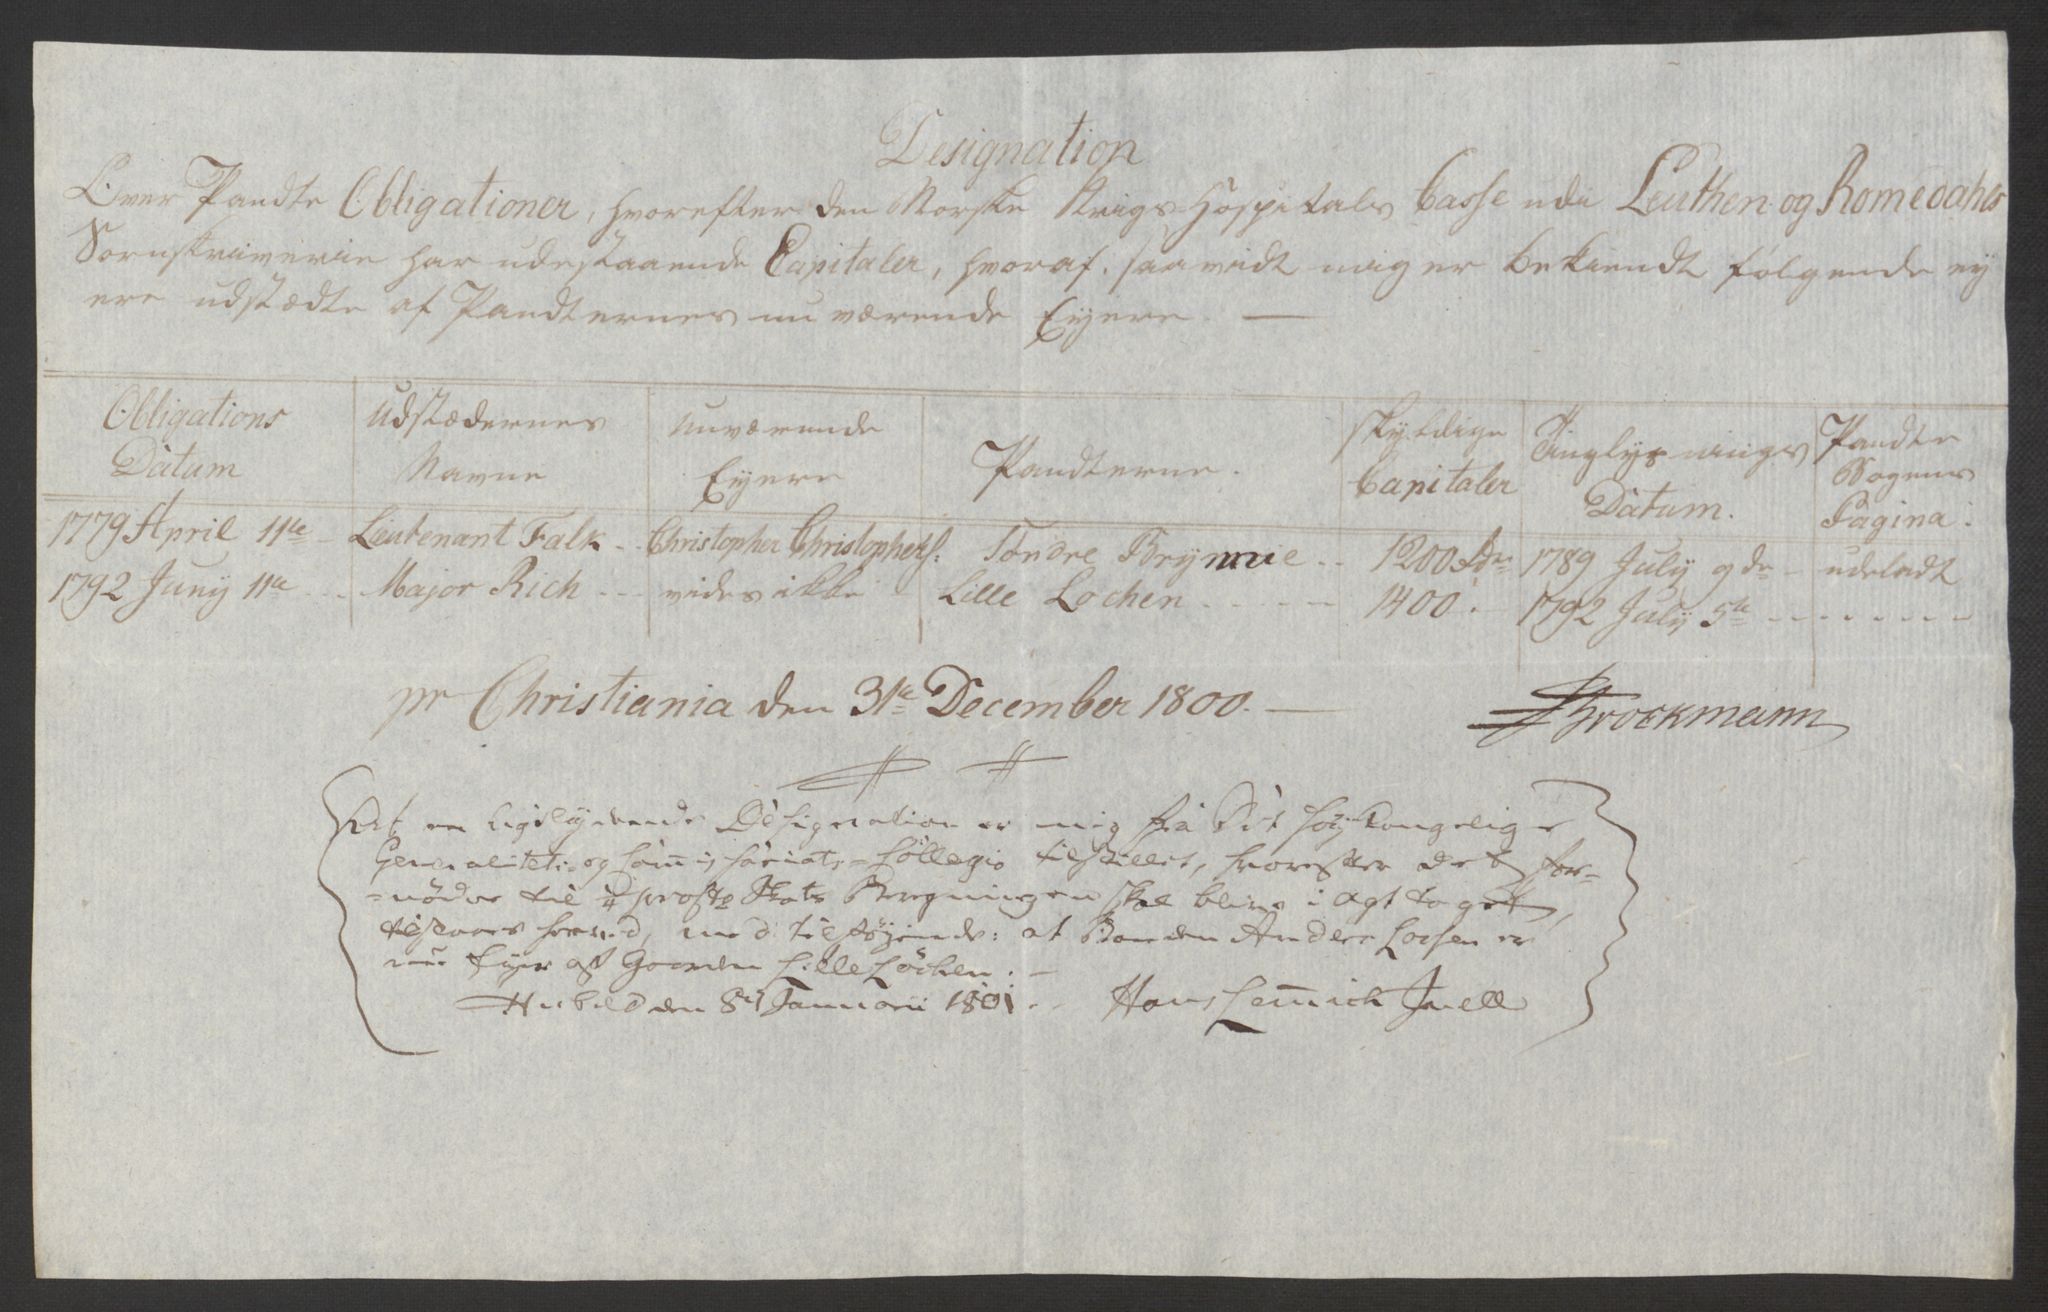 Designation
Over Pandte Obligationer, hvorefter den Norske Krigs Hospitals Casse udi Leuthen og Romedahls
Sornskriverie har udestaaende Capitaler, hvoraf, saavidt mig er bekiendt følgende ey
ere udstædte af Pandternes nu værende Eyere. —
Obligations Datum | Udstædernes Navne | nuværende Eyere | Pandterne. | skyldige Capitaler | Tinglysnings Datum. | Pandte Bogens Pagina.
1779 April 11te | Leutenant Falk | Christopher Christophers: | Søndre Brynnie | 1200 Rdr | 1789 July 9de | udeladt
1792 Juny 11te | Major Rich | vides ikke | Lille Lochen | 1400. | 1792 July 5te
pr Christiania den 31te December 1800. —
Brockmann
At en ligelydende Designation er mig fra Det høy Kongelige
Generalitets- og Commissariats-Collegio tilstillet, hvorefter det for-
=nødne til Skats Beregningen skal blive i agt taget,
tilstaaes herved, med tilføyende: at Bonden Anders Larsen er
nu Eyer af Gaarden Lille Löchen. —
den 8de Januarii 1801. Hans Lemmich Juell